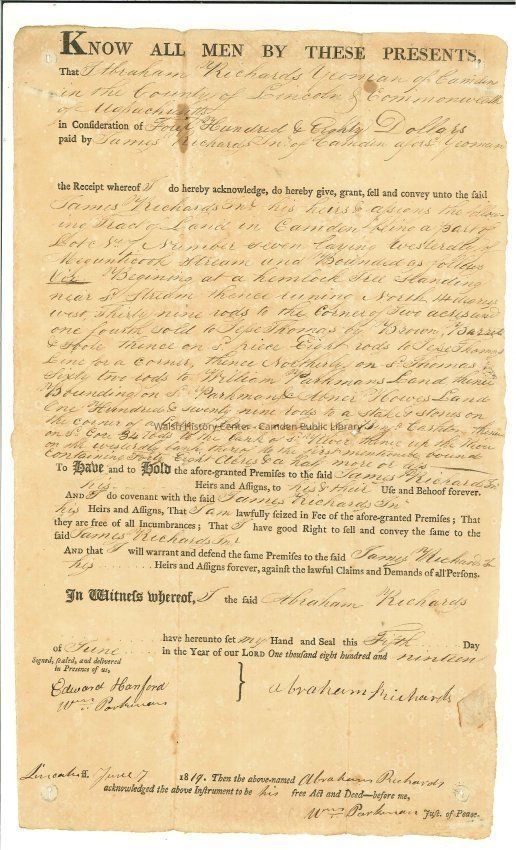 KNOW ALL MEN BY THESE PRESENTS,
That I Abraham Richards Yeoman of Camden
in the County of Lincoln & Commonwealth
of Massachusetts
in Consideration of Four Hundred & Eighty Dollars
paid by James Richards Jnr of Camden afors Yeoman
the Receipt whereof I do hereby acknowledge, do hereby give, grant, sell and convey unto the said
James Richards Jnr his heirs & asigns the
Tract of Land in Camden being a part of
Number Seven laying Westerly of
Megunticook Stream and Bounded as follows
Viz Begining at a hemlock Tree Standing
near sd Stream thence runing North
west, Thirty nine rods to the Corner of Two acres and
one fourth sold to Jesse Thomas by Brown,
thence on sd piece Eight rods to Jesse Thomas
Line for a corner, thence Northerly on sd Thomas
Sixty two rods to William Parkmans Land thence
Bounding on sd Parkman & Abner Howes Land
One Hundred & Twenty nine rods to a Stake & Stones on
the corner of
on sd 34 rods to the bank of sd River thence up the River
to the first mentioned bounds
Containing Forty Eight Acres & a half more or less
Walsh History Center - Camden Public Library
To Have and to Hold the afore-granted Premises to the said James Richards Jnr
his Heirs and Assigns, to his & their Use and Behoof forever.
AND I do covenant with the said James Richards Jnr
his Heirs and Assigns, That I am lawfully seized in Fee of the afore-granted Premises; That
they are free of all Incumbrances; That I have good Right to sell and convey the same to the
said James Richards Jnr
AND that I will warrant and defend the same Premises to the said James Richards Jnr
his Heirs and Assigns forever, against the lawful Claims and Demands of all Persons.
In Witness whereof, I the said Abraham Richards
have hereunto set my Hand and Seal this Fifth Day
of June in the Year of our LORD One thousand eight hundred and nineteen
Signed, sealed, and delivered
in Presence of us,
Edward Hanford
Wm Parkman
Abraham Richards
Lincoln ss. June 7 1819. Then the above-named Abraham Richards
acknowledged the above Instrument to be his free Act and Deed—before me,
Wm Parkman Just. of Peace.